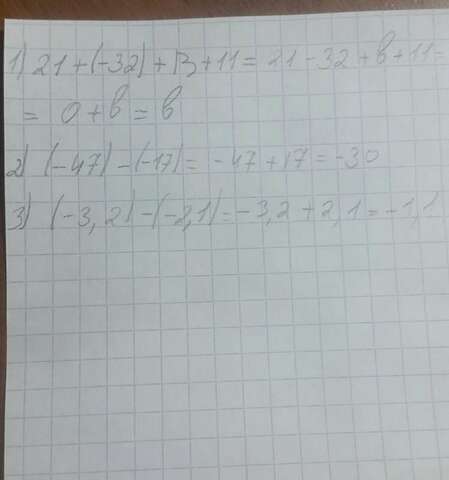 1) 21 + (-32) + В + 11 = 21 - 32 + в + 11 =
= 0 + в = в
2) (-47) - (-17) = -47 + 17 = -30
3) (-3,2) - (-2,1) = -3,2 + 2,1 = -1,1